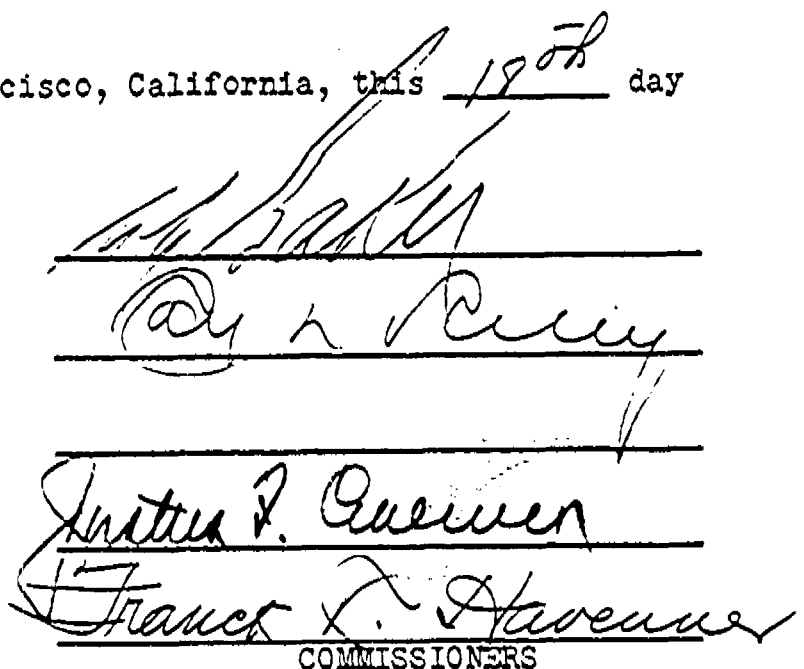 cisco, California, this 18th day
Baker
Ray L Riley
Justus F. Craemer
Franck R. Havenner
COMMISSIONERS